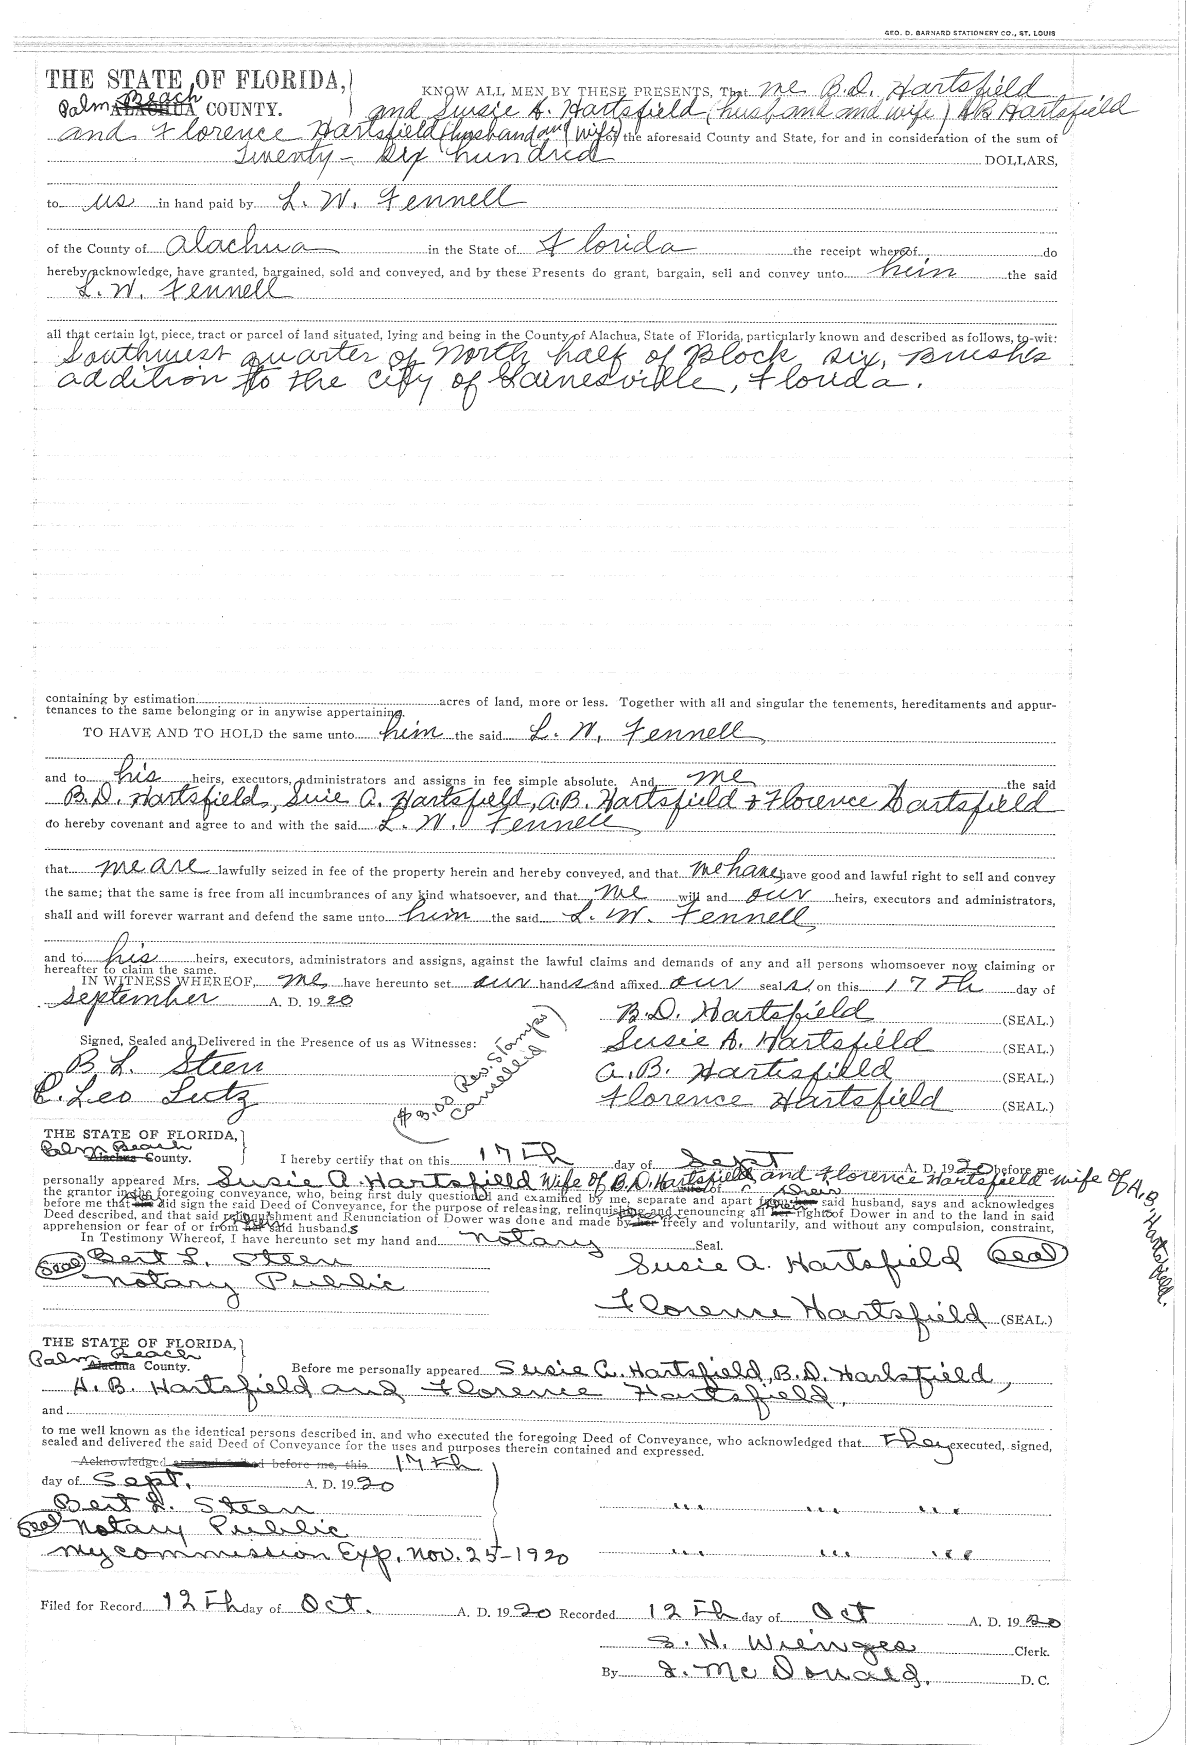 GEO. D. BARNARD STATIONERY CO., ST. LOUIS
THE STATE OF FLORIDA,
KNOW ALL MEN BY THESE PRESENTS, That we B.D. Hartsfield
Palm Beach ALACHUA COUNTY.
and Susie A. Hartsfield (husband and wife) A B Hartsfield
and Florence Hartsfield (husband and wife) of the aforesaid County and State, for and in consideration of the sum of
Twenty-six hundred DOLLARS,
to us in hand paid by L. W. Fennell
of the County of Alachua in the State of Florida the receipt whereof do
hereby acknowledge, have granted, bargained, sold and conveyed, and by these Presents do grant, bargain, sell and convey unto him the said
L. W. Fennell
all that certain lot, piece, tract or parcel of land situated, lying and being in the County of Alachua, State of Florida, particularly known and described as follows, to-wit:
Southwest quarter of North half of Block six, Brush's
addition to the city of Gainesville, Florida.
containing by estimation acres of land, more or less. Together with all and singular the tenements, hereditaments and appur-
tenances to the same belonging or in anywise appertaining.
TO HAVE AND TO HOLD the same unto him the said L. W. Fennell
and to his heirs, executors, administrators and assigns in fee simple absolute. And we the said
B.D. Hartsfield, Suie A. Hartsfield, A.B. Hartsfield & Florence Hartsfield
do hereby covenant and agree to and with the said L. W. Fennell
that we are lawfully seized in fee of the property herein and hereby conveyed, and that we have have good and lawful right to sell and convey
the same; that the same is free from all incumbrances of any kind whatsoever, and that we will and our heirs, executors and administrators,
shall and will forever warrant and defend the same unto him the said L. W. Fennell
and to his heirs, executors, administrators and assigns, against the lawful claims and demands of any and all persons whomsoever now claiming or
hereafter to claim the same.
IN WITNESS WHEREOF, we have hereunto set our hands and affixed our seals on this 17th day of
September A. D. 1920
B.D. Hartsfield (SEAL.)
Signed, Sealed and Delivered in the Presence of us as Witnesses:
Susie A. Hartsfield (SEAL.)
B L. Steen
A.B. Hartsfield (SEAL.)
C. Leo Lutz
Florence Hartsfield (SEAL.)
($3.00 Rev. Stamps
Cancelled)
THE STATE OF FLORIDA,
Palm Beach Alachua County.
I hereby certify that on this 17th day of Sept A. D. 1920 before me
personally appeared Mrs. Susie A. Hartsfield Wife of B.D. Hartsfield and Florence Hartsfield wife of A.B. Hartsfield.
the grantor in the foregoing conveyance, who, being first duly questioned and examined by me, separate and apart from their said husband, says and acknowledges
before me that she did sign the said Deed of Conveyance, for the purpose of releasing, relinquishing and renouncing all her rights of Dower in and to the land in said
Deed described, and that said relinquishment and Renunciation of Dower was done and made by her freely and voluntarily, and without any compulsion, constraint,
apprehension or fear of or from their said husbands
In Testimony Whereof, I have hereunto set my hand and notary Seal.
(Seal) Bert L. Steen
Notary Public
Susie A. Hartsfield (Seal)
Florence Hartsfield (SEAL.)
THE STATE OF FLORIDA,
Palm Beach Alachua County.
Before me personally appeared Susie A. Hartsfield, B.D. Hartsfield,
A. B. Hartsfield and Florence Hartsfield,
and
to me well known as the identical persons described in, and who executed the foregoing Deed of Conveyance, who acknowledged that They executed, signed,
sealed and delivered the said Deed of Conveyance for the uses and purposes therein contained and expressed.
Acknowledged before me, this 17th
day of Sept. A. D. 1920
Bert L. Steen
(Seal) Notary Public
My commission Exp. Nov. 25-1920
Filed for Record 12Th day of Oct. A. D. 1920 Recorded 12Th day of Oct A. D. 1920
S. H. Wienges Clerk.
By I. McDonald. D. C.